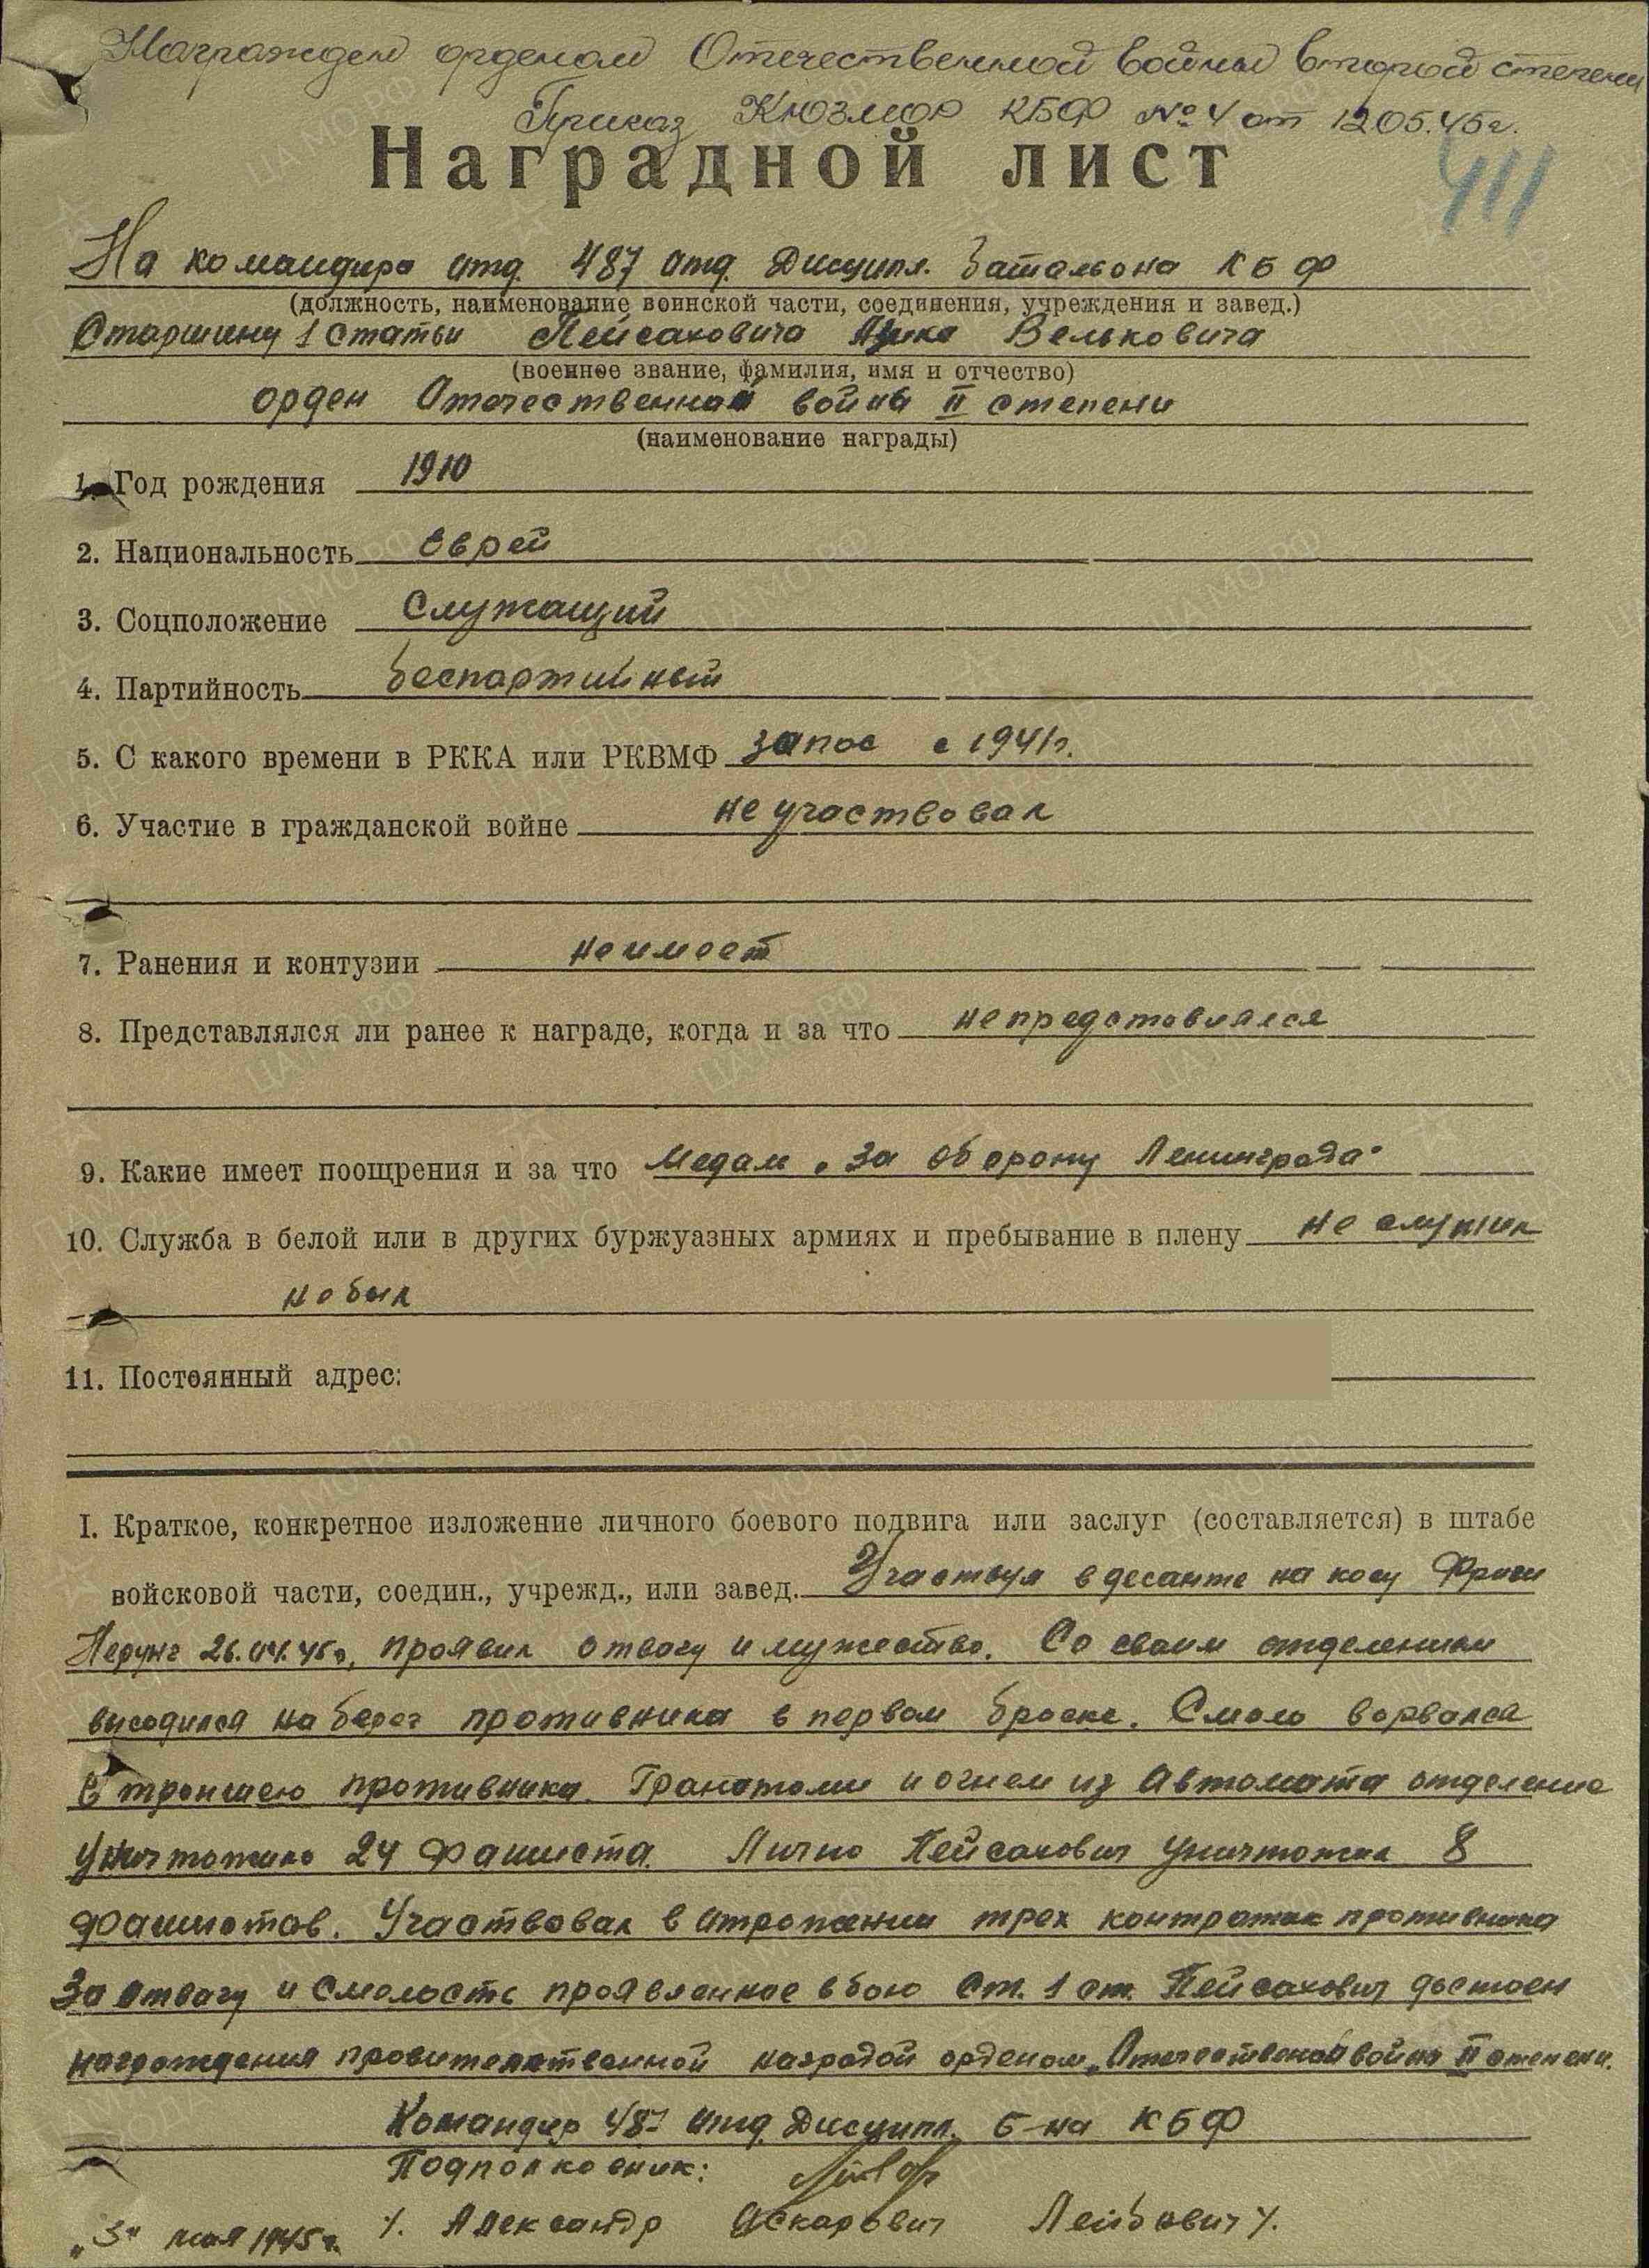 Награжден орденом Отечественной войны второй степени
Приказ КЮЗМОР КБФ № 4 от 12.05.45г.
411
Наградной лист
На командира отд. 487 отд. Дисципл. батальона КБФ
(должность, наименование воинской части, соединения, учреждения и завед.)
Старшину 1 статьи Пейсаховича Вельковича
(военное звание, фамилия, имя и отчество)
орден Отечественной войны II степени
(наименование награды)
1. Год рождения 1910
2. Национальность еврей
3. Соцположение Служащий
4. Партийность беспартийный
5. С какого времени в РККА или РКВМФ запас с 1941г.
6. Участие в гражданской войне не участвовал
7. Ранения и контузии не имеет
8. Представлялся ли ранее к награде, когда и за что не представлялся
9. Какие имеет поощрения и за что Медаль „За оборону Ленинграда"
10. Служба в белой или в других буржуазных армиях и пребывание в плену не служил
не был
11. Постоянный адрес:
I. Краткое, конкретное изложение личного боевого подвига или заслуг (составляется) в штабе
войсковой части, соедин., учрежд., или завед. Участвуя в десанте на косу Фриш
Нерунг 26.04.45г. проявил отвагу и мужество. Со своим отделением
высадился на берег противника в первом броске. Смело ворвался
в траншею противника. Гранатами и огнем из автомата отделение
уничтожило 24 фашиста. Лично Пейсахович уничтожил 8
фашистов. Участвовал в отражении трех контратак противника
За отвагу и смелость проявленное в бою ст. 1 ст. Пейсахович достоен
награждения правительственной наградой орденом „Отечественной войны II степени.
Командир 487 отд. Дисципл. б-на КБФ
Подполковник:
/. Александр Оскарович Лейбович /.
„3" мая 1945г.